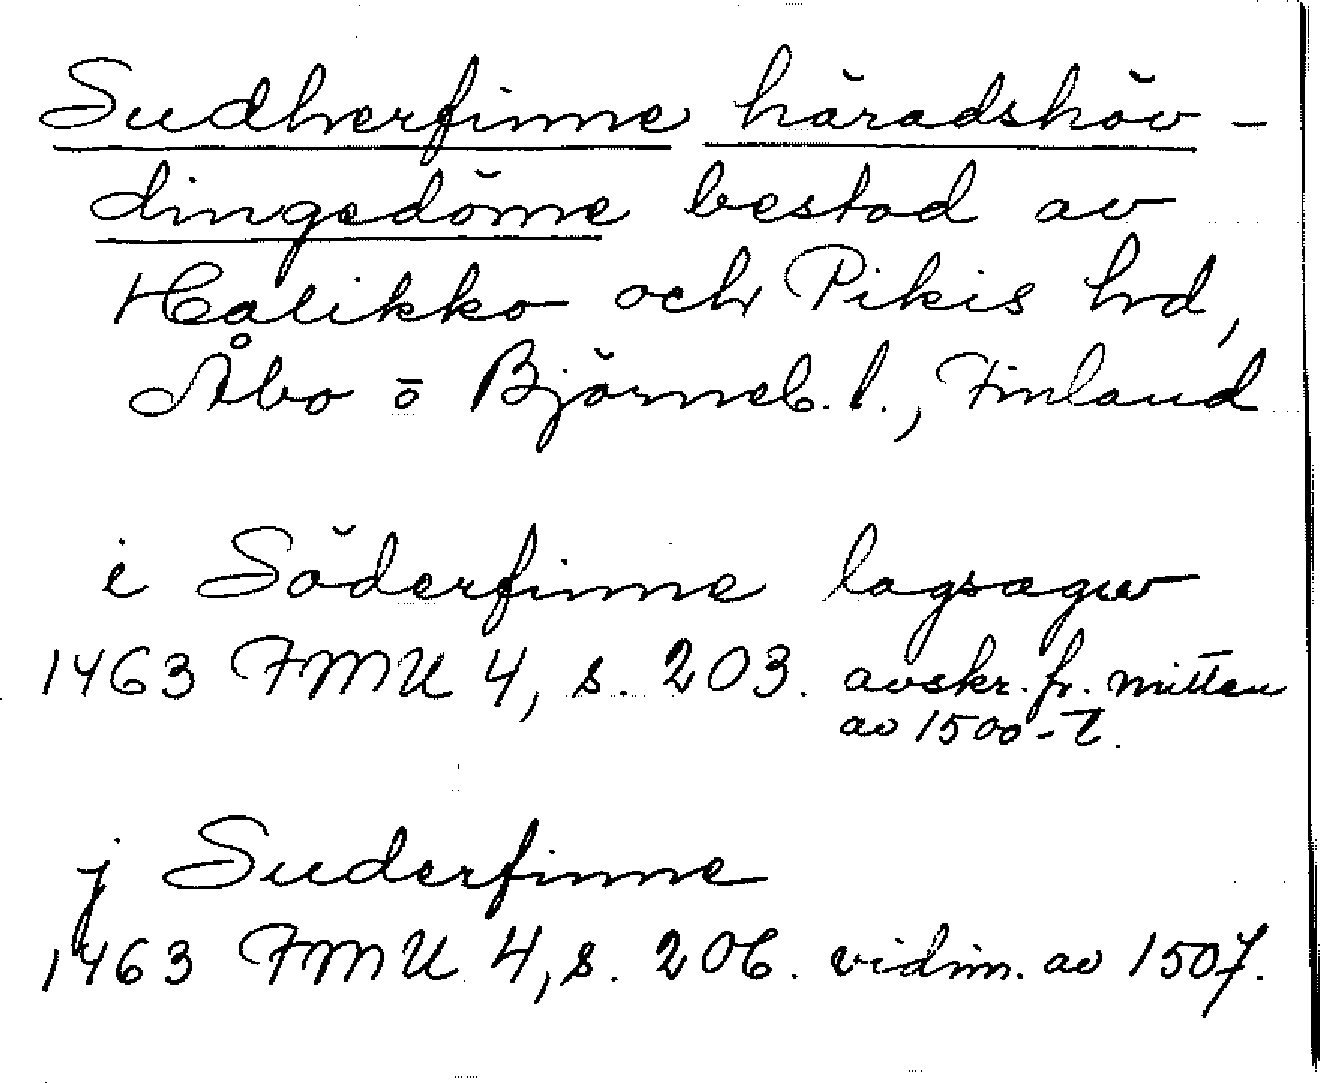 Sudherfinne häradshöv-
dingedöme bestod av
Halikko och Pikis hrd,
Åbo o Björneb. l., Finland
i Söderfinne lagsagw
1463 FMU 4, s. 203. avskr. fr. mitten
av 1500-t.
j Suderfinne
1463 FMU 4, s. 206. vidim. av 1507.